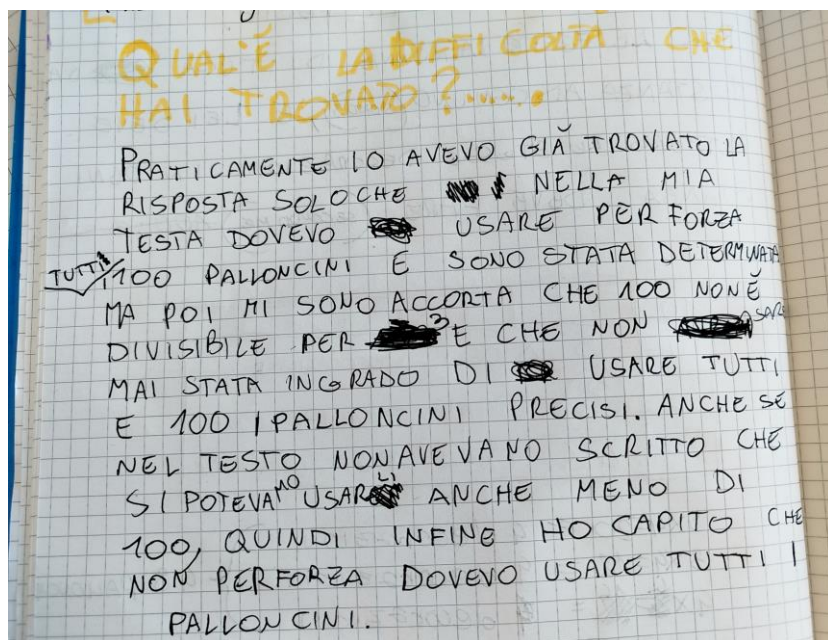 QUAL'È LA DIFFICOLTÀ CHE
HAI TROVATO?.....
PRATICAMENTE IO AVEVO GIÀ TROVATO LA
RISPOSTA SOLO CHE NELLA MIA
TESTA DOVEVO USARE PER FORZA
TUTTI I 100 PALLONCINI E SONO STATA DETERMINATA
MA POI MI SONO ACCORTA CHE 100 NON È
DIVISIBILE PER 3 E CHE NON SAREI
MAI STATA INGRADO DI USARE TUTTI
E 100 I PALLONCINI PRECISI. ANCHE SE
NEL TESTO NON AVEVANO SCRITTO CHE
SI POTEVANO USARLI ANCHE MENO DI
100, QUINDI INFINE HO CAPITO CHE
NON PERFORZA DOVEVO USARE TUTTI I
PALLONCINI.